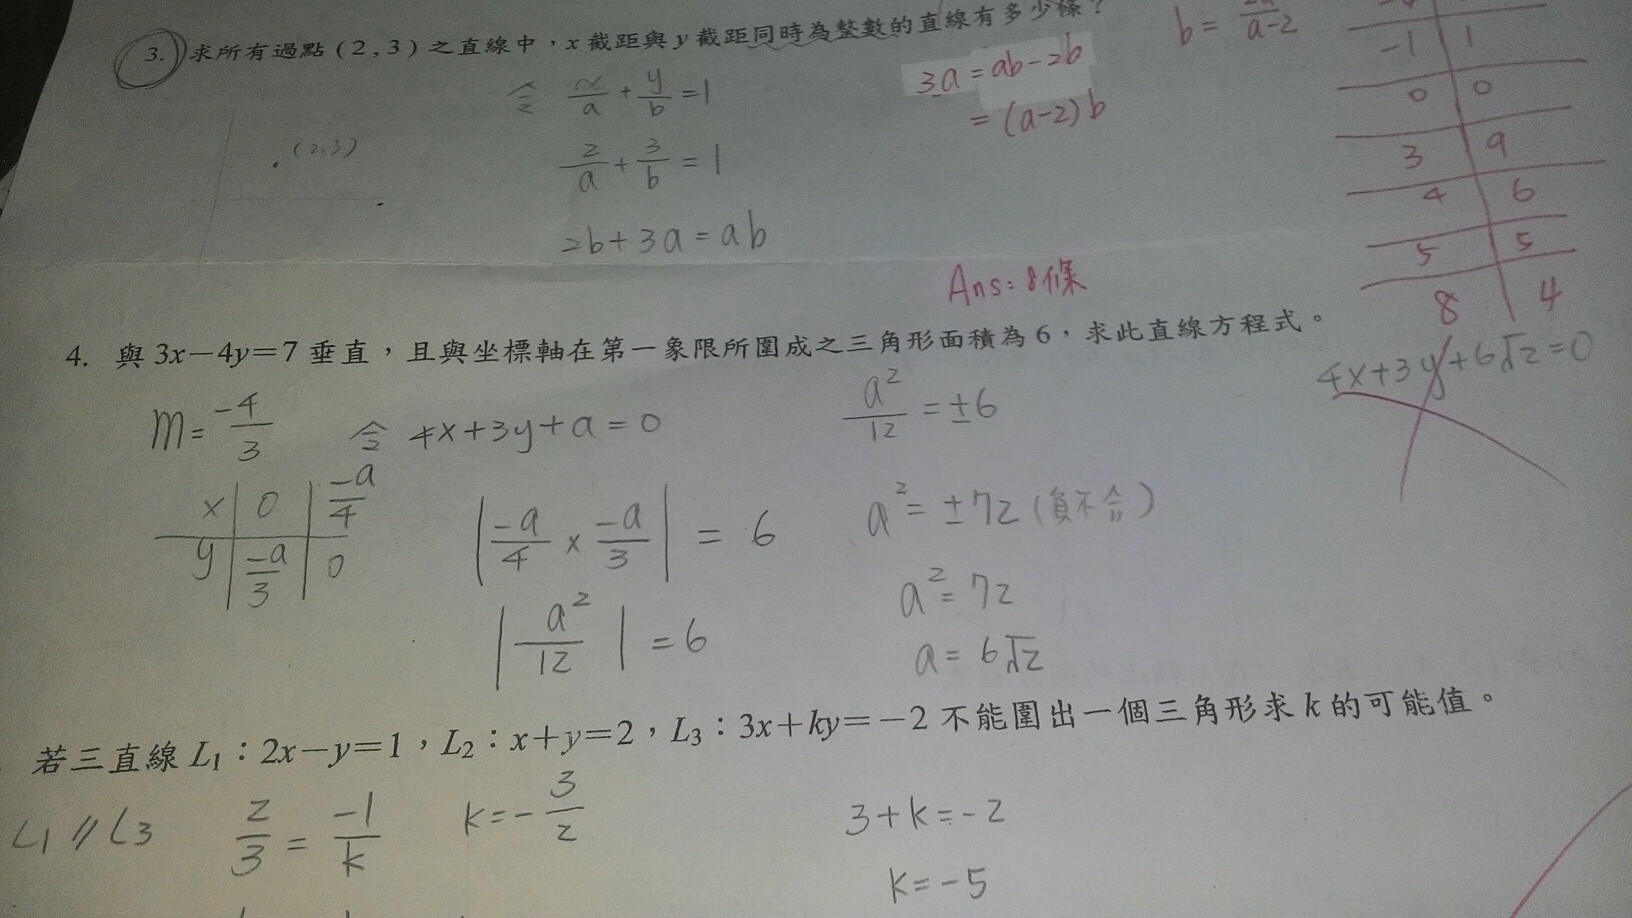 3. 求所有過點(2,3)之直線中，x 截距與 y 截距同時為整數的直線有多少條？
令 x/a + y/b = 1
(2,3)
2/a + 3/b = 1
2b+3a=ab
3a=ab-2b
=(a-2)b
b= /a-2
-1 1
0 0
3 9
4 6
5 5
8 4
Ans: 8條
4. 與 3x－4y＝7 垂直，且與坐標軸在第一象限所圍成之三角形面積為 6，求此直線方程式。
m= -4/3
令 4x+3y+a=0
x 0 -a/4
y -a/3 0
|-a/4 × -a/3| = 6
|a²/12| = 6
a²/12 = ±6
a²= ±72 (負不合)
a²= 72
a= 6√2
4x+3y+6√2=0
若三直線 L₁：2x－y＝1，L₂：x＋y＝2，L₃：3x＋ky＝－2 不能圍出一個三角形求 k 的可能值。
L1 // L3
2/3 = -1/k
k=-3/2
3+k=-2
k=-5